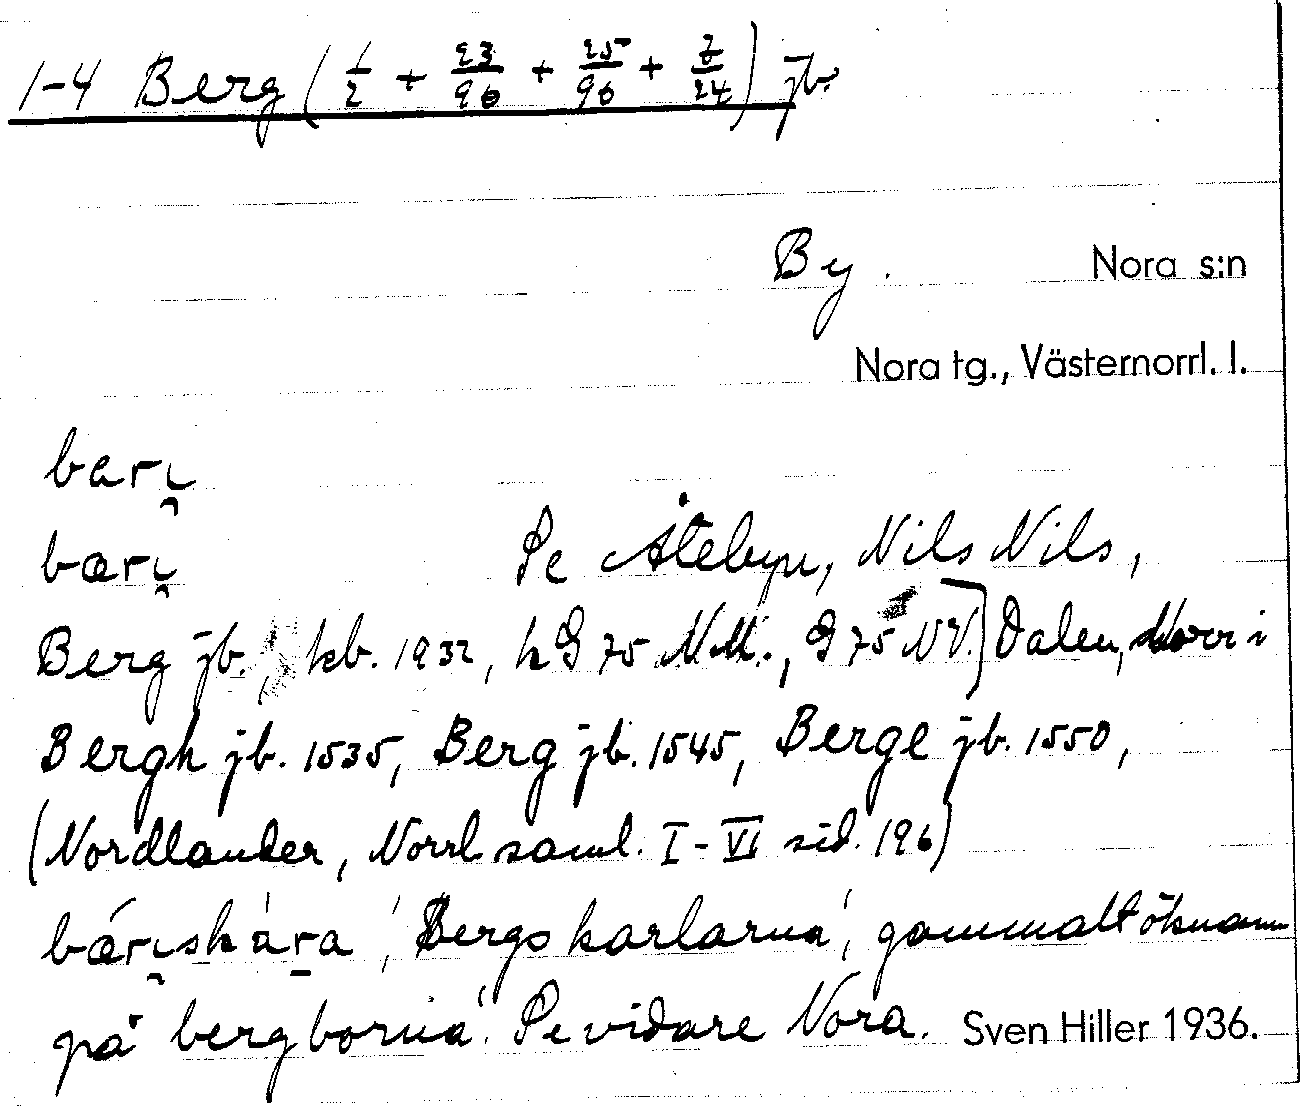 1-4 Berg (1/2 + 23/96 + 25/96 + 7/24) jb.
By. Nora s:n
Nora tg., Västernorrl. l.
barı̯
bærı̯ Se Åtebyn, Nils Nils,
Berg jb., kb. 1932, kG 75 N.M., G 75 NV.) Dalen, Norr i
Bergh jb. 1535, Berg jb. 1545, Berge jb. 1550,
(Nordlander, Norrl. saml. I-VI sid. 196)
'Bergskarlarna', gammalt öknamn
på 'bergborna'. Se vidare Nora. Sven Hiller 1936.